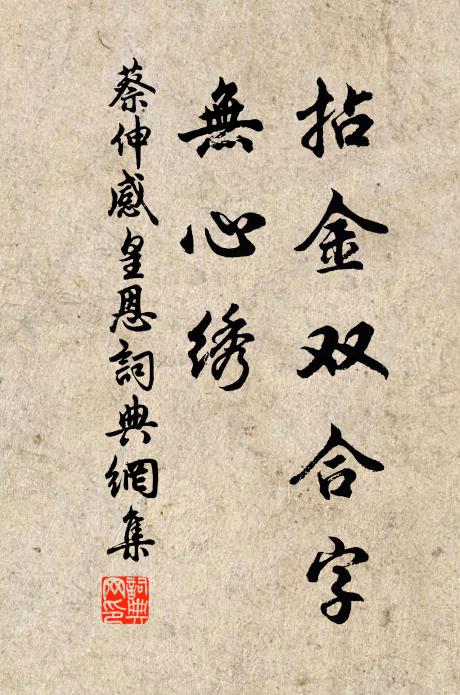 拈金双合字
無心绣
蔡伸感皇恩詞典網集
詞典网印